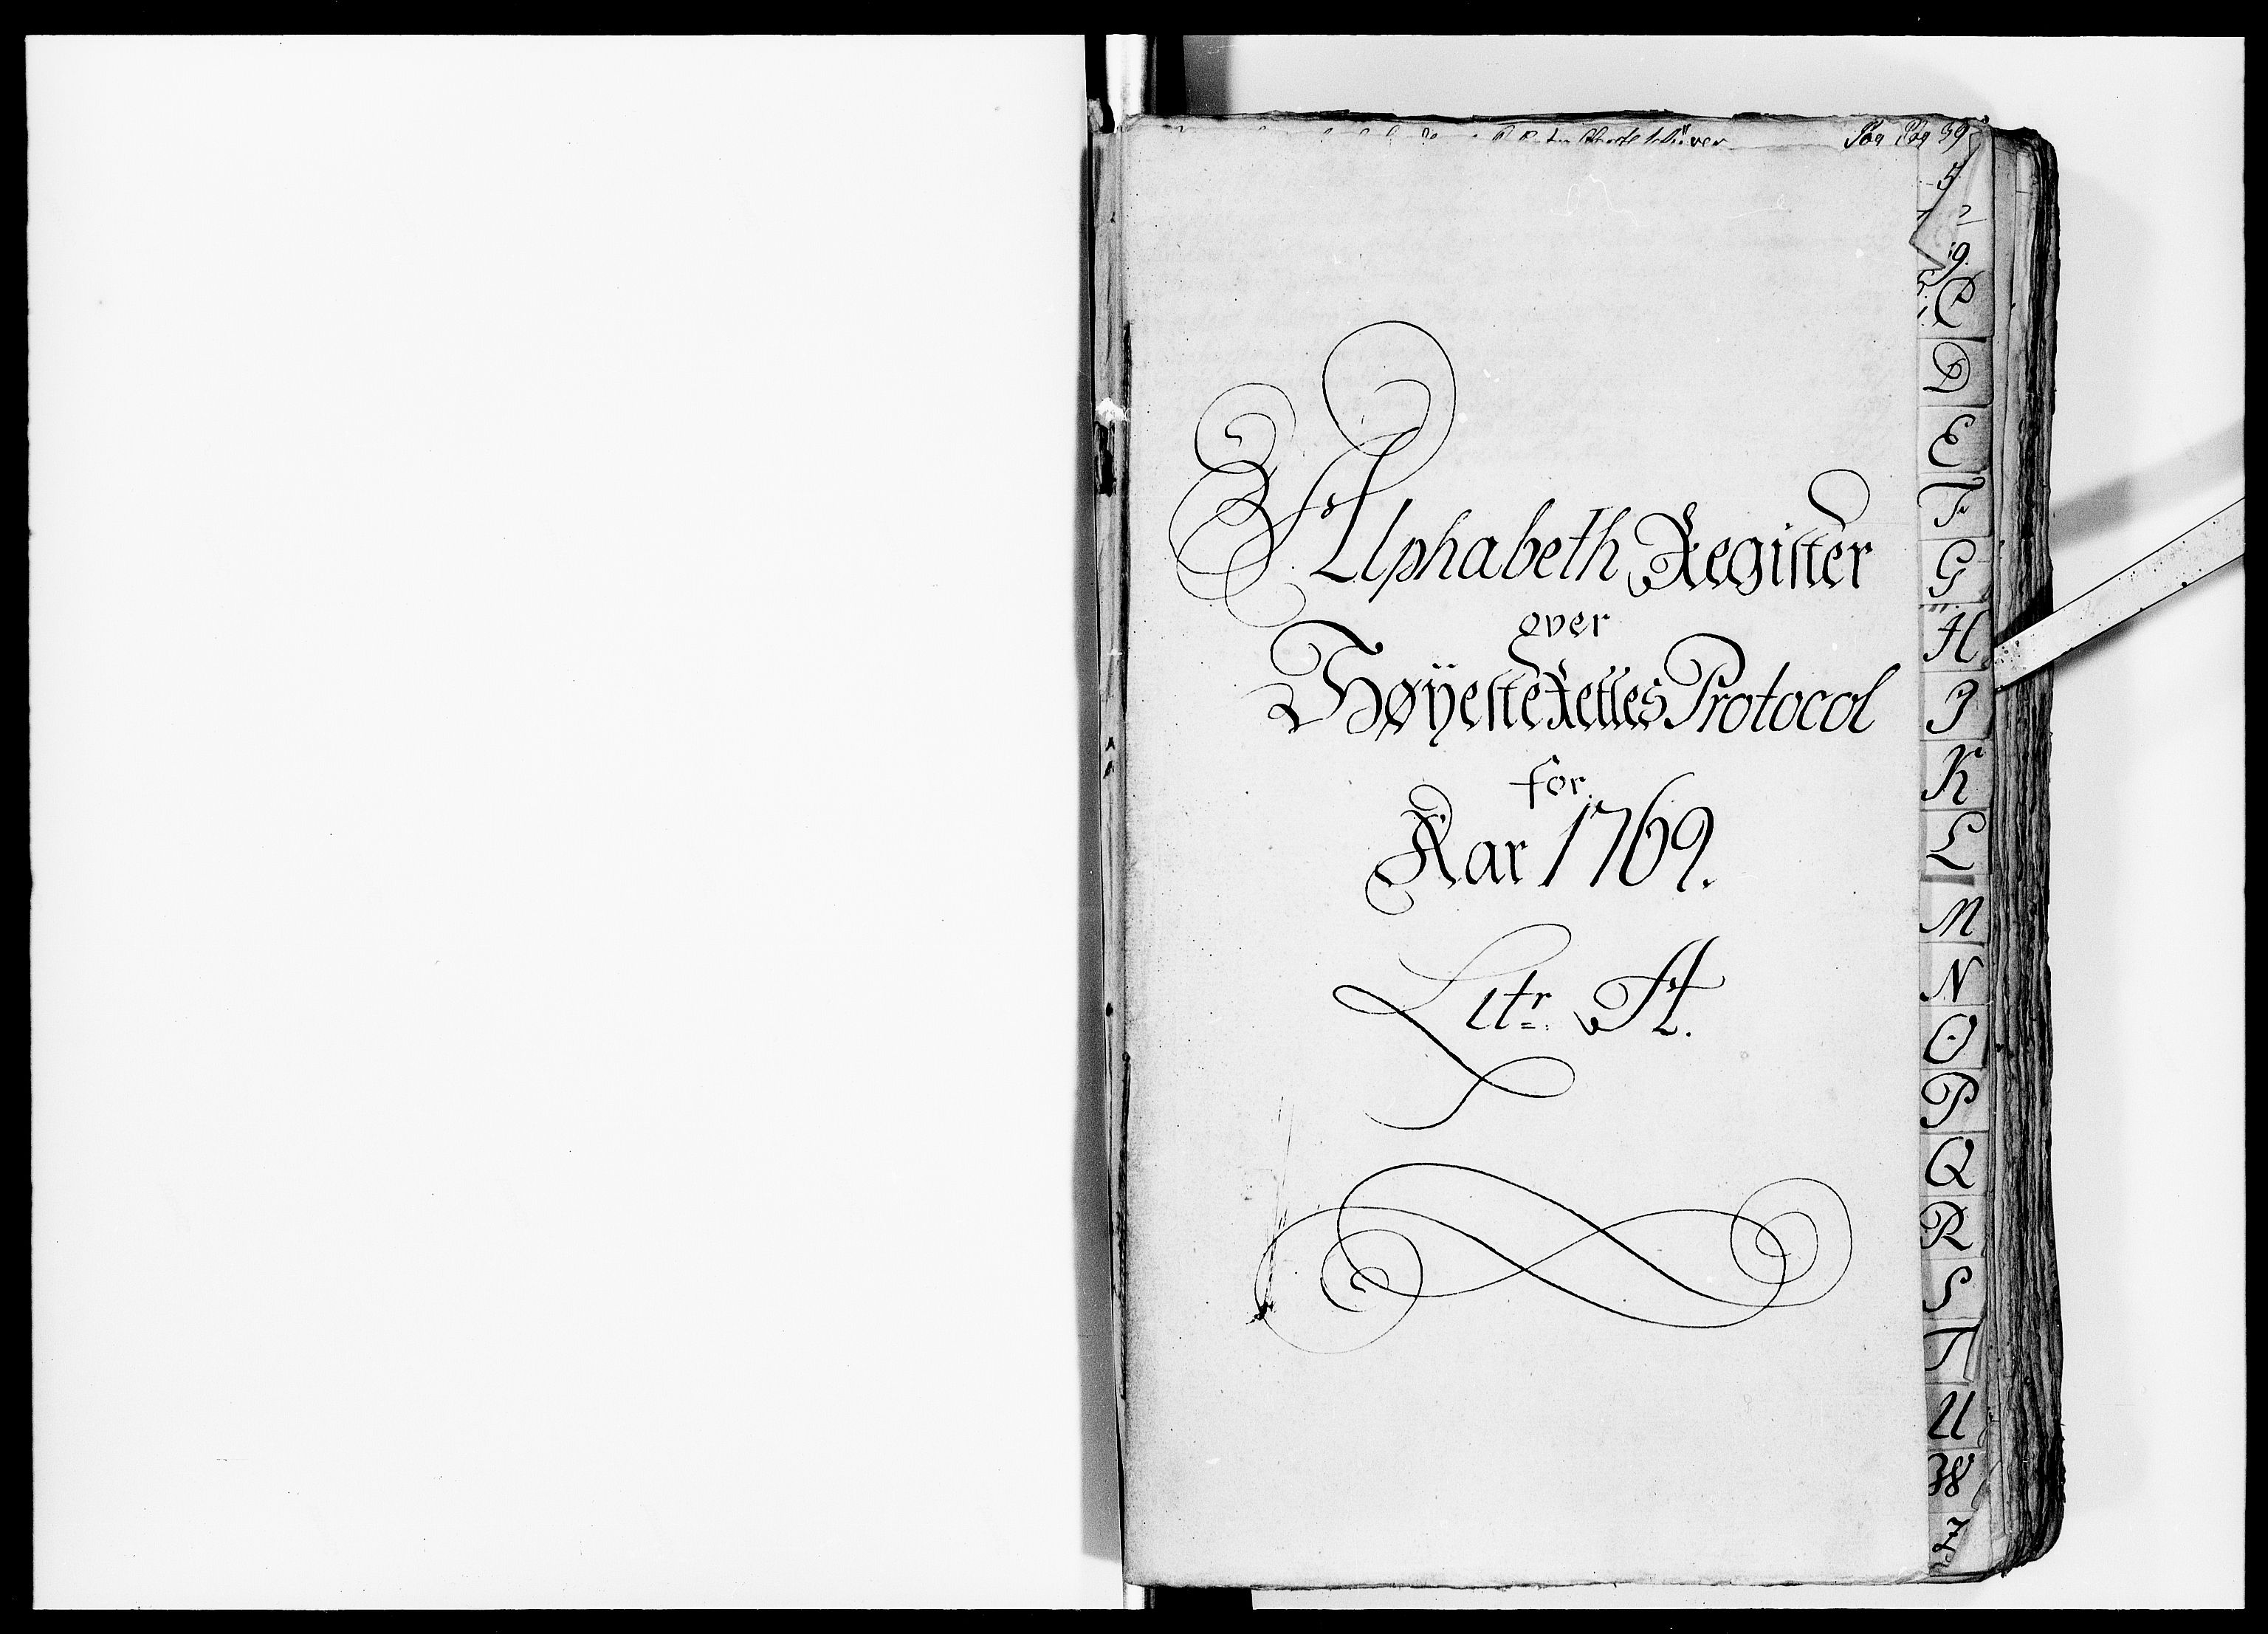 Pag Pag 39
5
9.
Alphabeth Register
over
Høÿeste Rettes Protocol
for
Aar 1769.
Litr. A.
C
D
E
F
G
H
I
K
L
M
N
O
P
Q
R
S
T
U
W
Z